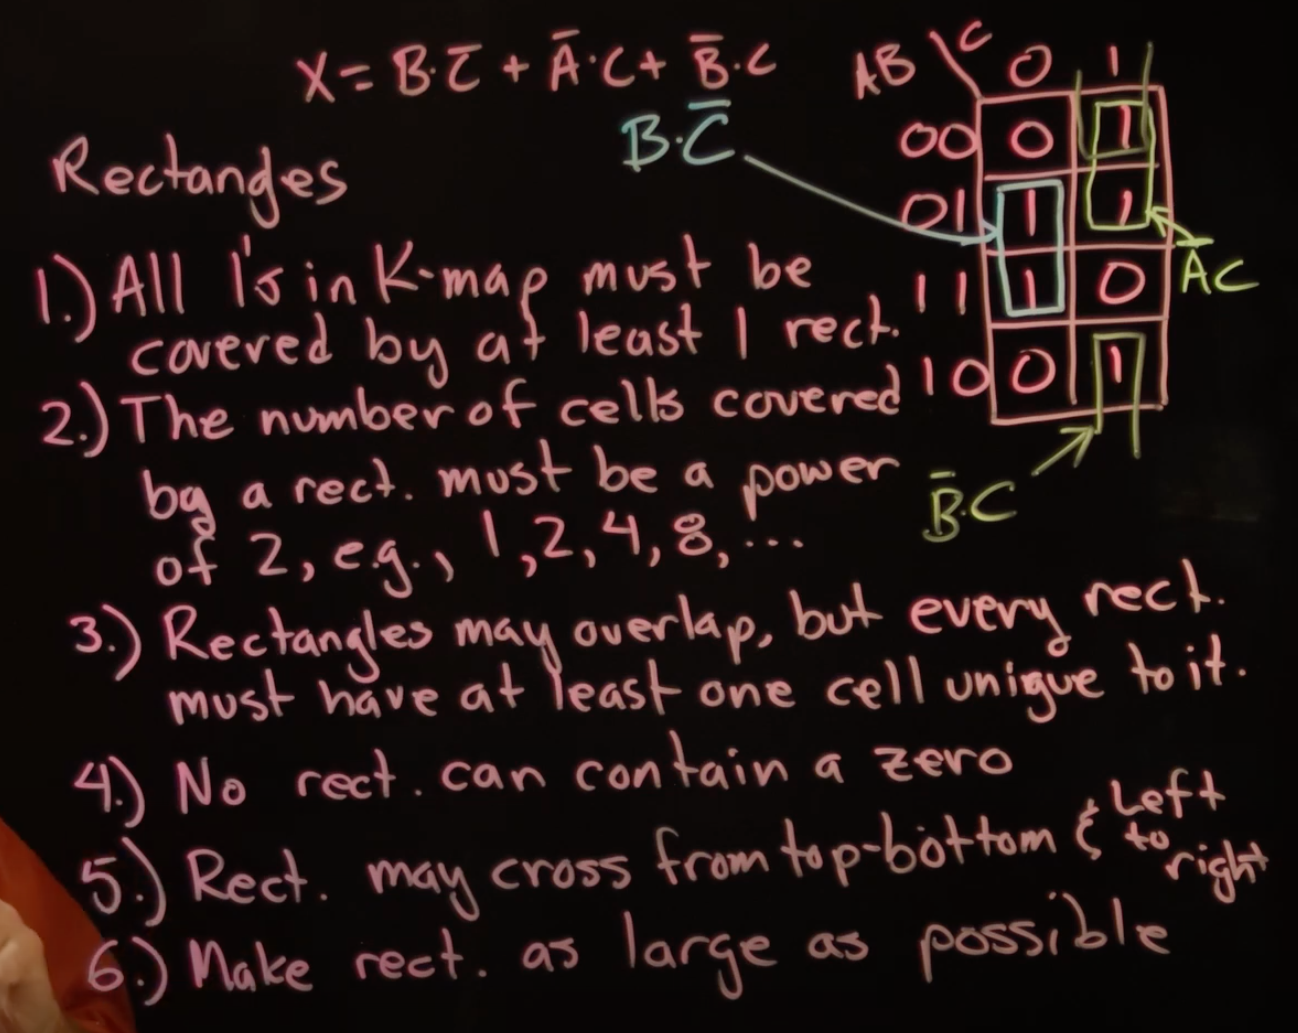 X = B·C̅ + A̅·C + B̅·C
AB \ C 0 1
B·C̅
00 0 1
Rectangles
01 1 1
1.) All 1's in K-map must be
A̅C
11 1 0
covered by at least 1 rect.
10 0 1
2.) The number of cells covered
by a rect. must be a power
B̅·C
of 2, e.g., 1,2,4,8, ...
3.) Rectangles may overlap, but every rect.
must have at least one cell unique to it.
4.) No rect. can contain a zero
5.) Rect. may cross from top-bottom & Left
to
right
6.) Make rect. as large as possible